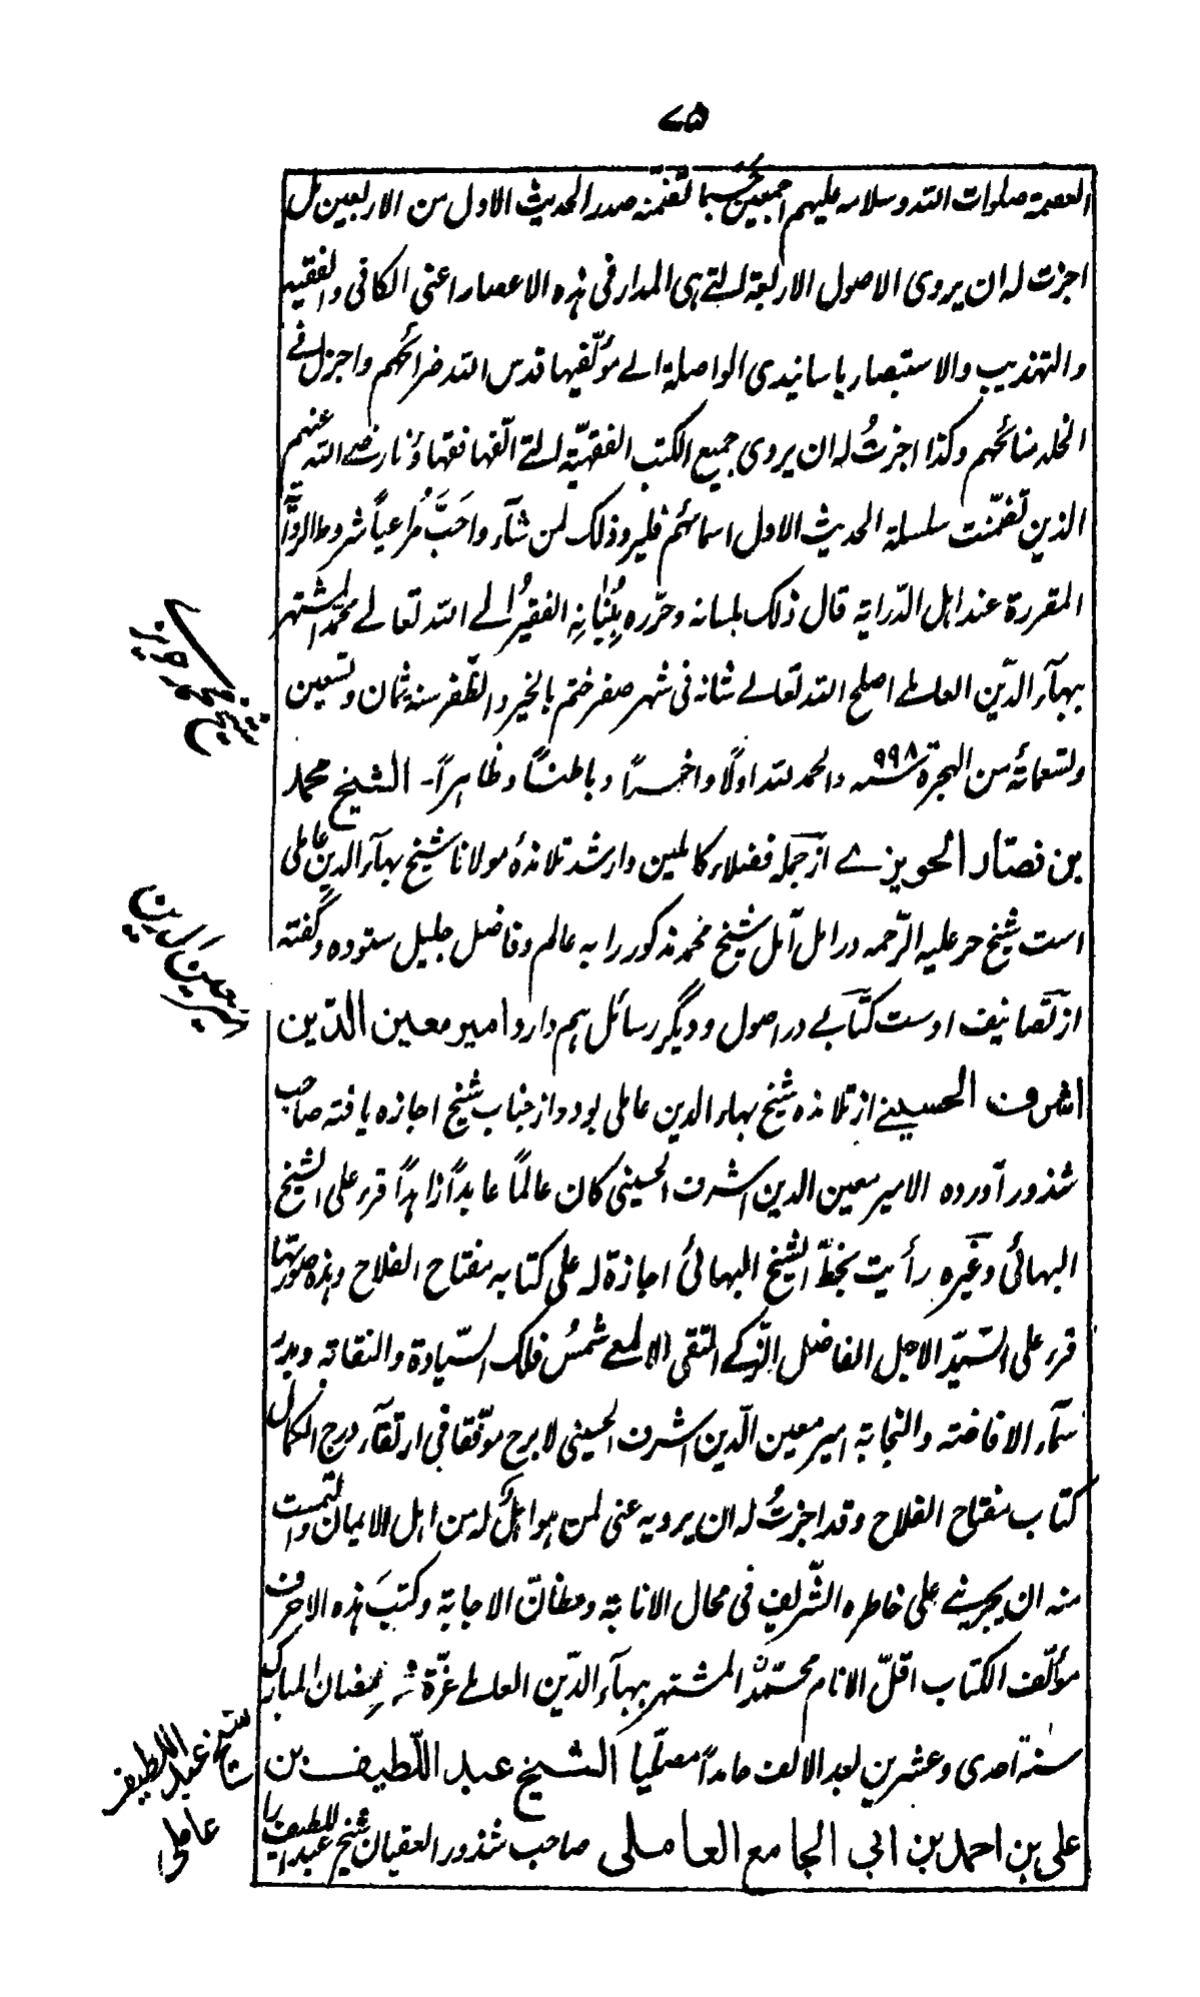 ٧٥
العصمة صلوات الله وسلامه عليهم اجمعين حسبما تضمّنه صدر الحديث الاول من الاربعين بل
اجزت له ان يروى الاصول الاربعة التے ہى المدار فى ہذه الاعصار اعنى الكافى والفقيه
والتهذيب والاستبصار باسانيدى الواصلة الے مؤلّفيها قدس الله ضرائحهم واجزل فے
الخلد منائحهم وكذا اجزتُ له ان يروى جميع الكتب الفقهيّة التے الّفها فقهاؤنا رضے الله عنهم
الذين تضمّنت سلسلة الحديث الاول اسمائهم فليرو ذلك لمن شآء واحَبَّ مُراعياً شروط الروّاية
المقررة عند اہل الدّراية قال ذلك بلسانه وحرّره بِبَنَانِهِ الفقيرُ الے الله تعالے محمّد المشتهر
ببهآء الدّين العاملے اصلح الله تعالے شانه فى شهر صفر ختم بالخير والظّفر سنه ثمان وتسعين
وتسعمائة من الهجرة سنه ٩٩٨ والحمد لله اولًا واخراً وباطناً وظاہراً۔ الشيخ محمد
بن نصّار الحويزے از جمله فضلاء كاملين وارشد تلامذهٔ مولانا شيخ بهآء الدين عاملى
است شيخ حر عليه الرّحمه در امل آمل شيخ محمد مذكور را به عالم وفاضل جليل ستوده وگفته
از تصانيف اوست كتابے در اصول وديگر رسائل ہم دارد امير معين الدّين
اشرف الحسينے از تلامذه شيخ بهاء الدين عاملى بود واز جناب شيخ اجازه يافته صاحب
شذور آورده الامير معين الدين اشرف الحسينى كان عالمًا عابداً زاہداً قرء على الشيخ
البهائى وغيره رأيت بخطّ الشيخ البهائى اجازة له على كتابه مفتاح الفلاح وہذه صورتها
قرء على السّيّد الاجل الفاضل الزّكے التقى الالمعے شمسُ فلك السّيادة والنقابه وبدر
سمآء الافاضه والنجابة امير معين الدّين اشرف الحسينى لا برح موفّقا فى ارتقآء درج الكمال
كتاب مفتاح الفلاح وقد اجزتُ له ان يرويه عنى لمن ہو اہلٌ له من اہل الايمان والتمست
منه ان يجرينے على خاطره الشّريف فى محال الانابة ومظانّ الاجابة وكتبَ ہذه الاحرف
مؤلّف الكتاب اقلّ الانام محمّد المشتهر ببهآء الدّين العاملے غرّة شهر رمضان المبارك
سنة احدى وعشرين بعد الالف حامداً مصلّيا الشيخ عبد اللّطيف بن
على بن احمد بن ابى الجامع العاملى صاحب شذور العقيان شيخ عبد اللطيف را
شيخ محمد حويزے
امير معين الدين
شيخ عبد اللطيف
عاملى